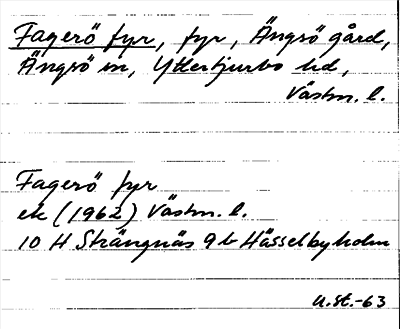 Fagerö fyr, fyr, Ängsö gård,
Ängsö sn, Yttertjurbo hd,
Västm. l.
Fagerö fyr
ek (1962) Västm. l.
10 H Strängnäs 9b Hässelbyholm
U.St.-63